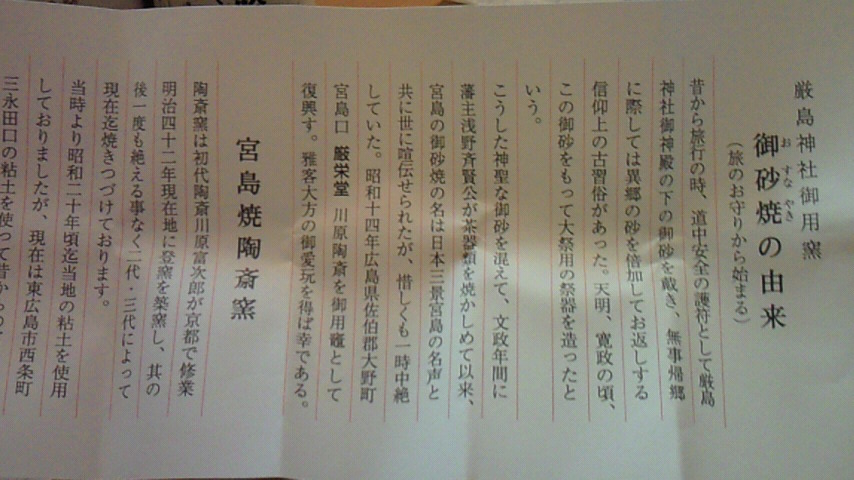 厳島神社御用窯
御砂焼の由来
おすなやき
(旅のお守りから始まる)
昔から旅行の時、道中安全の護符として厳島
神社御神殿の下の御砂を戴き、無事帰郷
に際しては異郷の砂を倍加してお返しする
信仰上の古習俗があった。天明、寛政の頃、
この御砂をもって大祭用の祭器を造ったと
いう。
こうした神聖な御砂を混えて、文政年間に
藩主浅野斉賢公が茶器類を焼かしめて以来、
宮島の御砂焼の名は日本三景宮島の名声と
共に世に喧伝せられたが、惜しくも一時中絶
していた。昭和十四年広島県佐伯郡大野町
宮島口 厳栄堂 川原陶斎を御用竈として
復興す。雅客大方の御愛玩を得ば幸である。
宮島焼陶斎窯
陶斎窯は初代陶斎川原富次郎が京都で修業
明治四十二年現在地に登窯を築窯し、其の
後一度も絶える事なく二代・三代によって
現在迄焼きつづけております。
当時より昭和二十年頃迄当地の粘土を使用
しておりましたが、現在は東広島市西条町
三永田口の粘土を使って昔からの